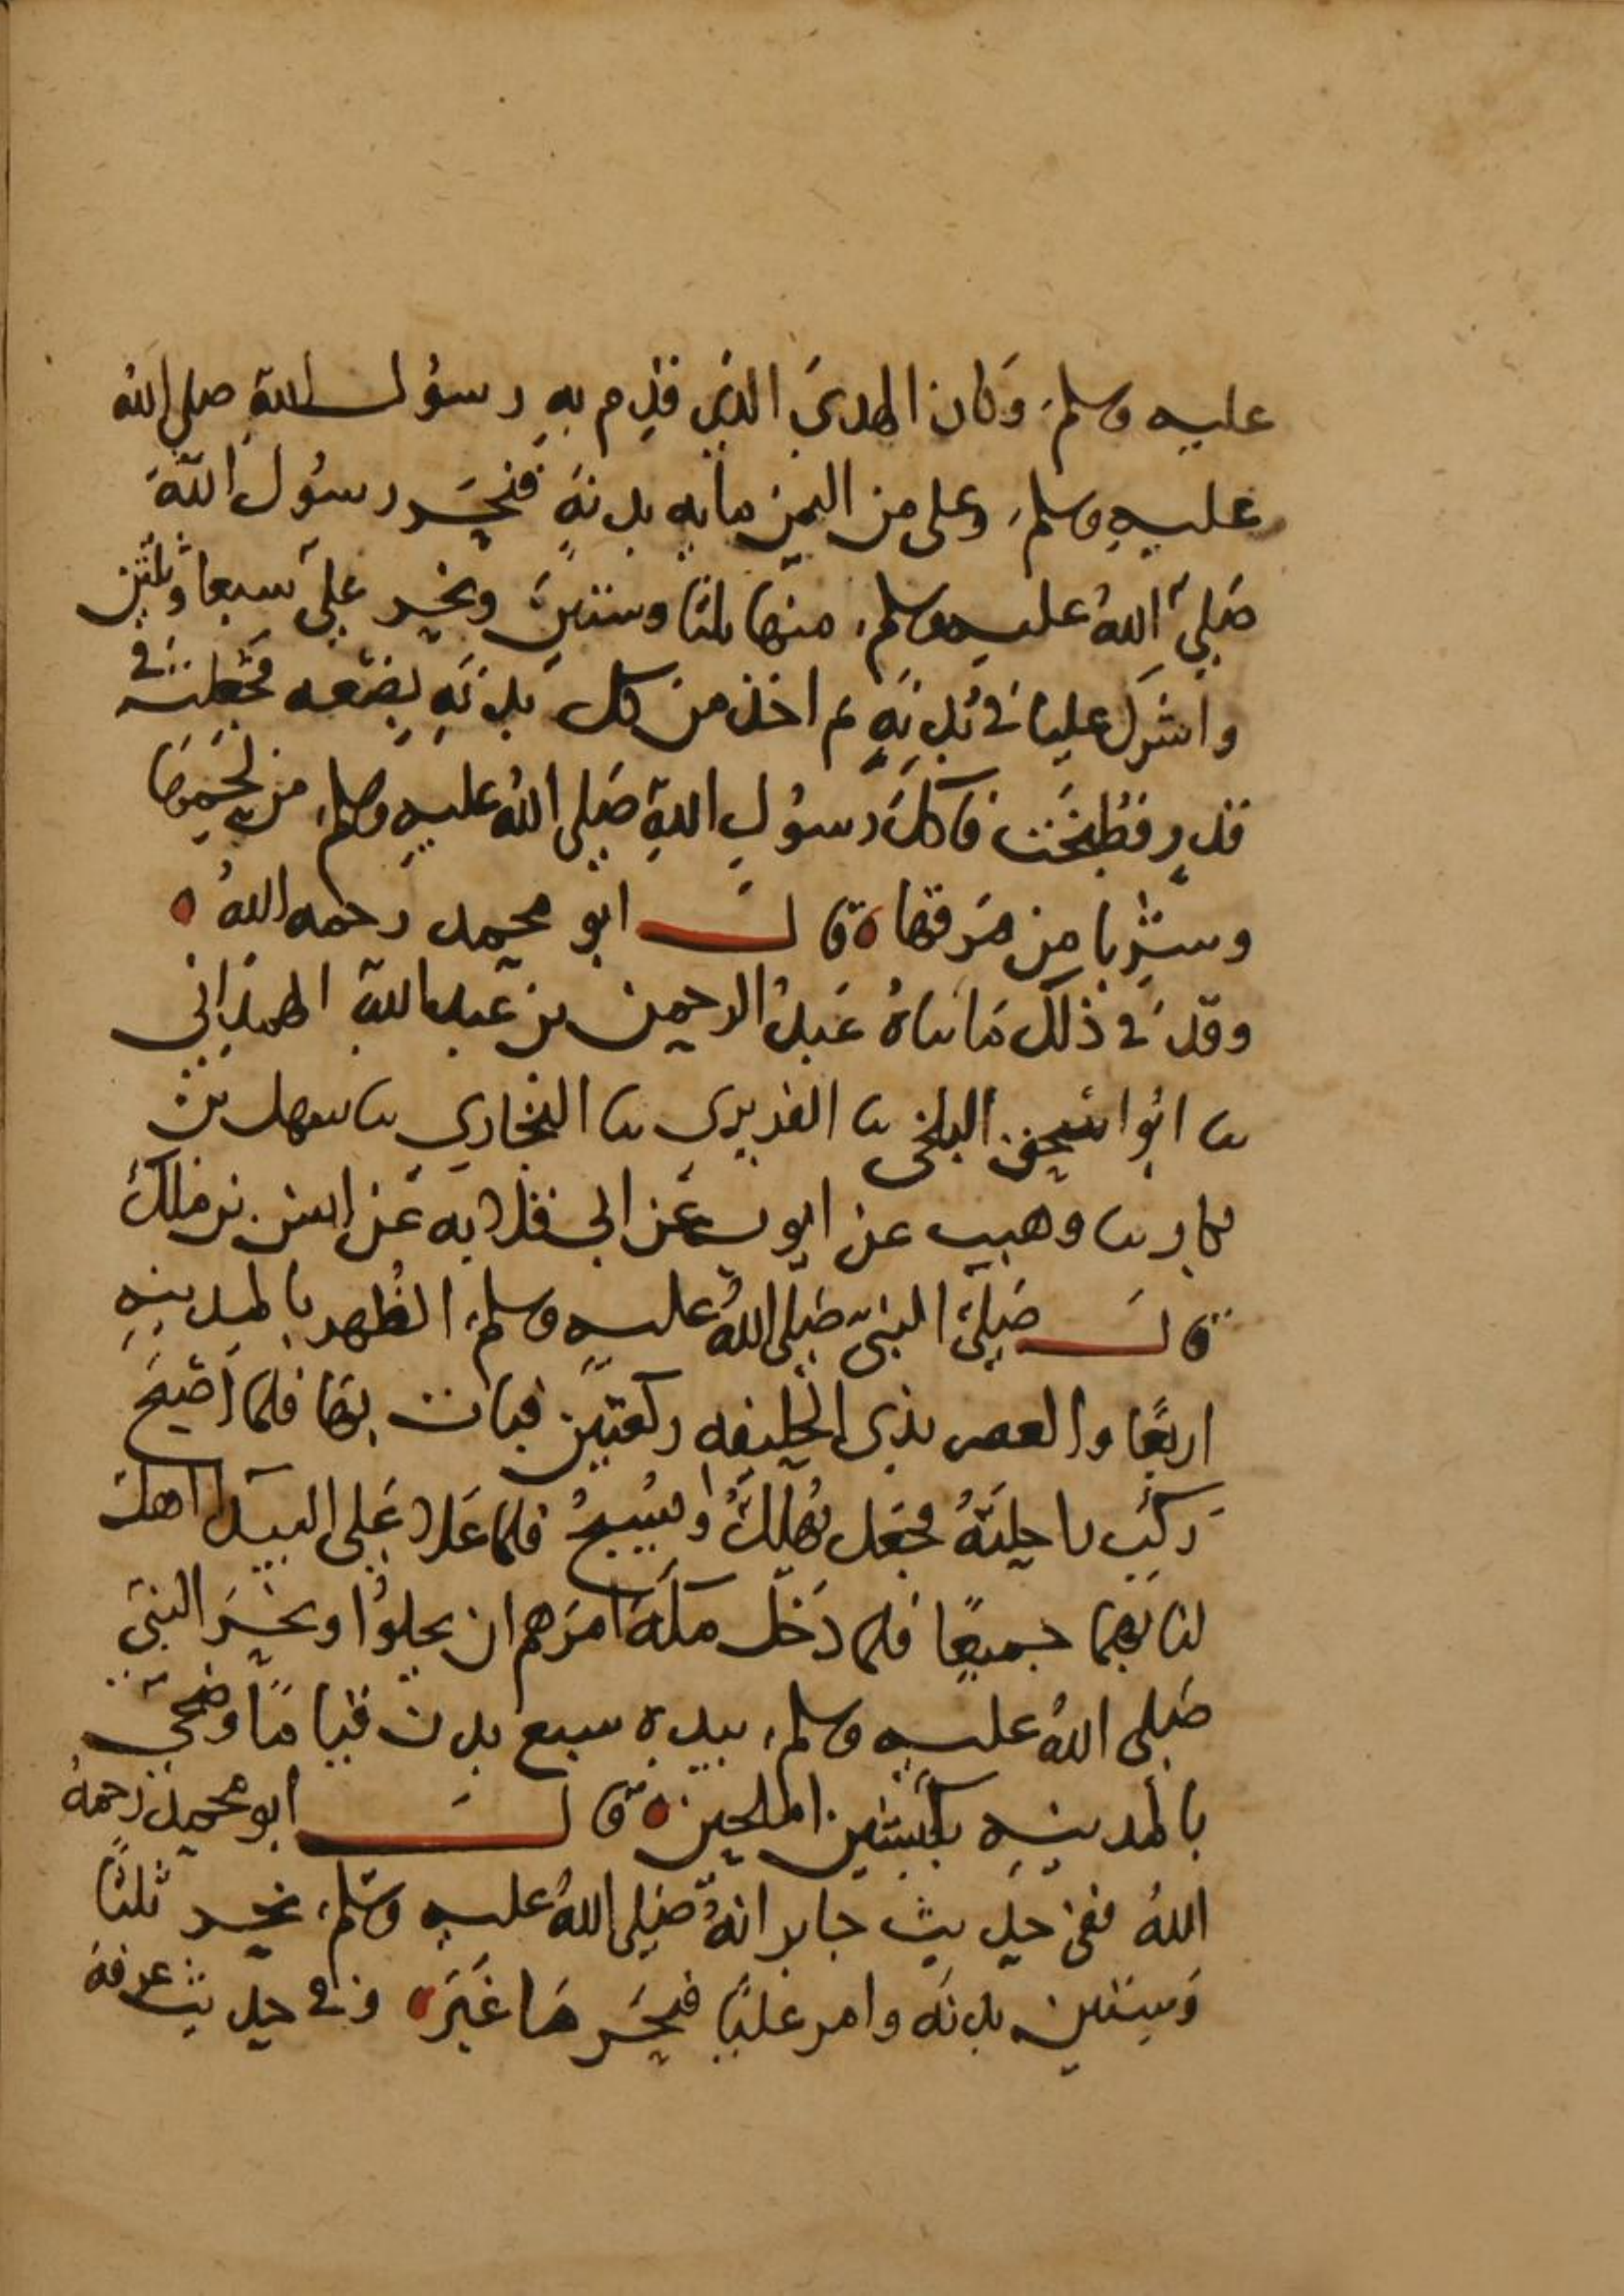 عليه وسلم، وكان الهدي الذي قدم به رسول الله صلى الله
عليه وسلم، وعلي من اليمن مايه بدنة فنحر رسول الله
صلى الله عليه وسلم، منها ثلثا وستين ونحر علي سبعا وثلثين
واشرك عليا في بدنه ثم اخذ من كل بدنه بضعه فجعلت في
قدر فطبخت فاكل رسول الله صلى الله عليه وسلم، من لحمها
وشربا من مرقها ه قال ابو محمد رحمه الله ه
وقد في ذلك ما ناه عبد الرحمن بن عبد الله الهمداني
نا ابو اسحق البلخي نا الفربري نا البخاري نا سهل بن
بكار نا وهيب عن ايوب عن ابي قلابه عن انس بن ملك
قال صلى النبي صلى الله عليه وسلم، الظهر بالمدينه
اربعا والعصر بذي الحليفه ركعتين فبات بها فلما اصبح
ركب راحلته فجعل يهلل ويسبح فلما علا على البيدا اهل
لنا بهما جميعا فلما دخل مكة امرهم ان يحلوا ونحر النبي
صلى الله عليه وسلم، بيده سبع بدن قياما وضحى
بالمدينه بكبشين املحين ه قال ابو محمد رحمه
الله ففي حديث جابر انه صلى الله عليه وسلم، نحر ثلثا
وستين بدنه وامر عليا فنحر ما غبره وفي حديث عرفة